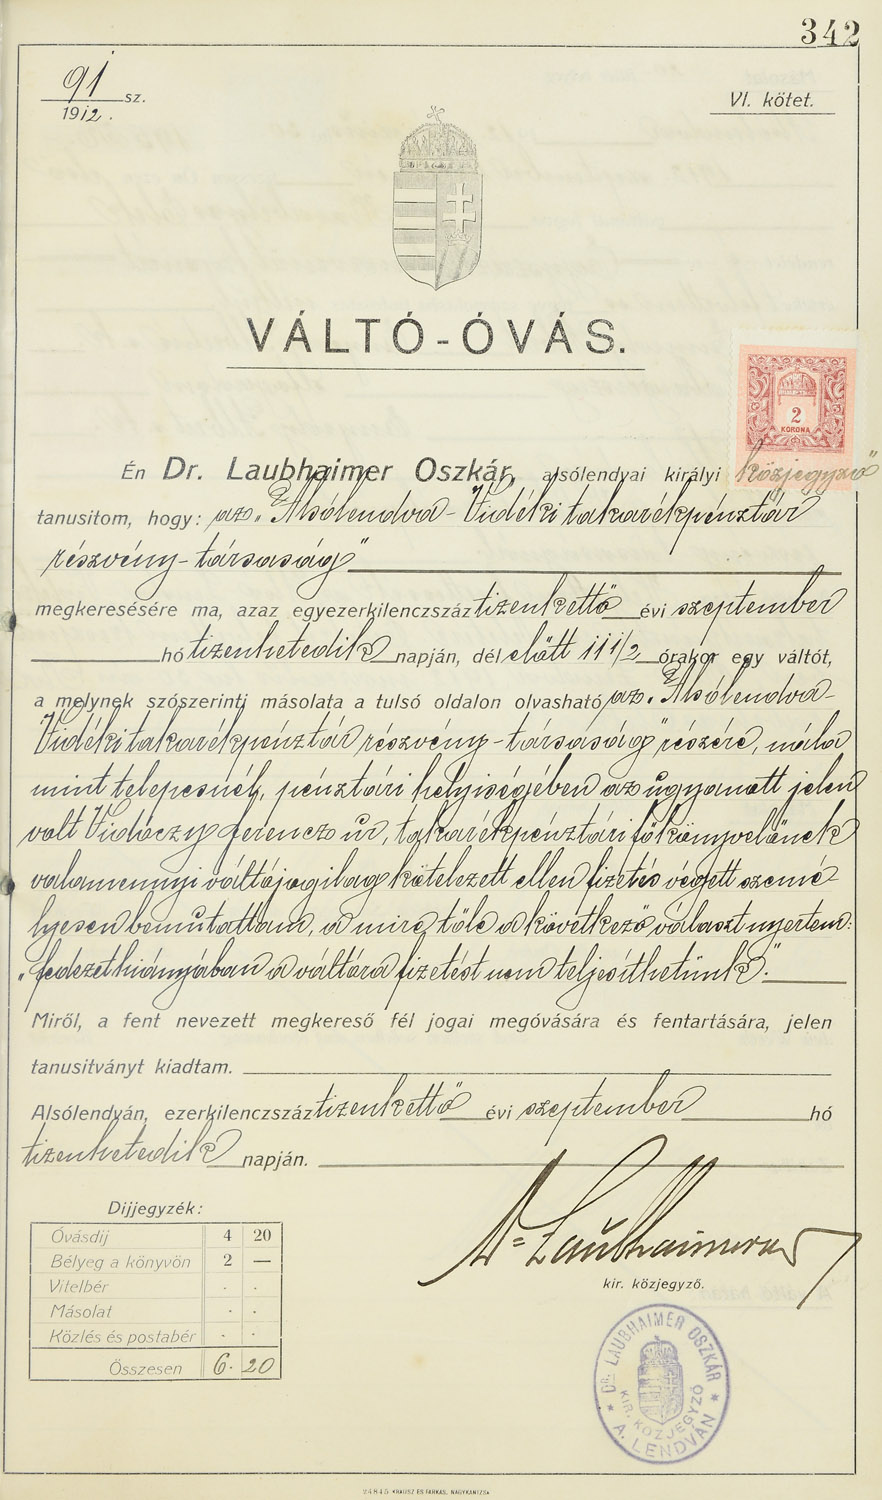 342
91 sz.
1912.
VI. kötet.
VÁLTÓ-ÓVÁS.
2
KORONA
Én Dr. Laubhaimer Oszkár, alsólendvai királyi közjegyző
tanusitom, hogy: az „Alsólendva-Vidéki takarékpénztár
részvény-társaság"
megkeresésére ma, azaz egyezerkilenczszáz tizenkettő évi szeptember
hó tizenhetedik napján, dél előtt 11 1/2 órakor egy váltót,
a melynek szószerinti másolata a tulsó oldalon olvasható, az „Alsólendva-
Vidéki takarékpénztár részvény-társaság" részére, nála
mint telepesnél, pénztári helyiségében az ugyanott jelen
volt Vidóczy Ferencz úr, takarékpénztári főkönyvelőnek
valamennyi váltójogilag kötelezett ellen fizetés végett szemé-
lyesen bemutattam, a mire tőle a következő választ nyertem:
„fedezet hiányában a váltóra fizetést nem teljesíthetünk".
Miről, a fent nevezett megkereső fél jogai megóvására és fentartására, jelen
tanusitványt kiadtam.
Alsólendván, ezerkilenczszáz tizenkettő évi szeptember hó
tizenhetedik napján.
Dr Laubhaimer
kir. közjegyző.
Dijjegyzék:
Óvásdij 4 20
Bélyeg a könyvön 2 —
Vitelbér . .
Másolat . .
Közlés és postabér . .
Összesen 6. 20
DR. LAUBHAIMER OSZKÁR
KIR. KÖZJEGYZŐ
A. LENDVÁN
24845 KRAUSZ ÉS FARKAS, NAGYKANIZSA